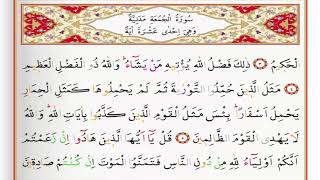 سُورَةُ الْجُمُعَةِ مَدَنِيَّةٌ
وَهِيَ اِحْدٰى عَشْرَةَ اٰيَةً
الْحَكٖيمُ ذٰلِكَ فَضْلُ اللّٰهِ يُؤْتٖيهِ مَنْ يَشَٓاءُ وَاللّٰهُ ذُو الْفَضْلِ الْعَظٖيمِ
مَثَلُ الَّذٖينَ حُمِّلُوا التَّوْرٰيةَ ثُمَّ لَمْ يَحْمِلُوهَا كَمَثَلِ الْحِمَارِ
يَحْمِلُ اَسْفَارًا بِئْسَ مَثَلُ الْقَوْمِ الَّذٖينَ كَذَّبُوا بِاٰيَاتِ اللّٰهِ وَاللّٰهُ
لَا يَهْدِى الْقَوْمَ الظَّالِمٖينَ قُلْ يَٓا اَيُّهَا الَّذٖينَ هَادُٓوا اِنْ زَعَمْتُمْ
اَنَّكُمْ اَوْلِيَٓاءُ لِلّٰهِ مِنْ دُونِ النَّاسِ فَتَمَنَّوُا الْمَوْتَ اِنْ كُنْتُمْ صَادِقٖينَ